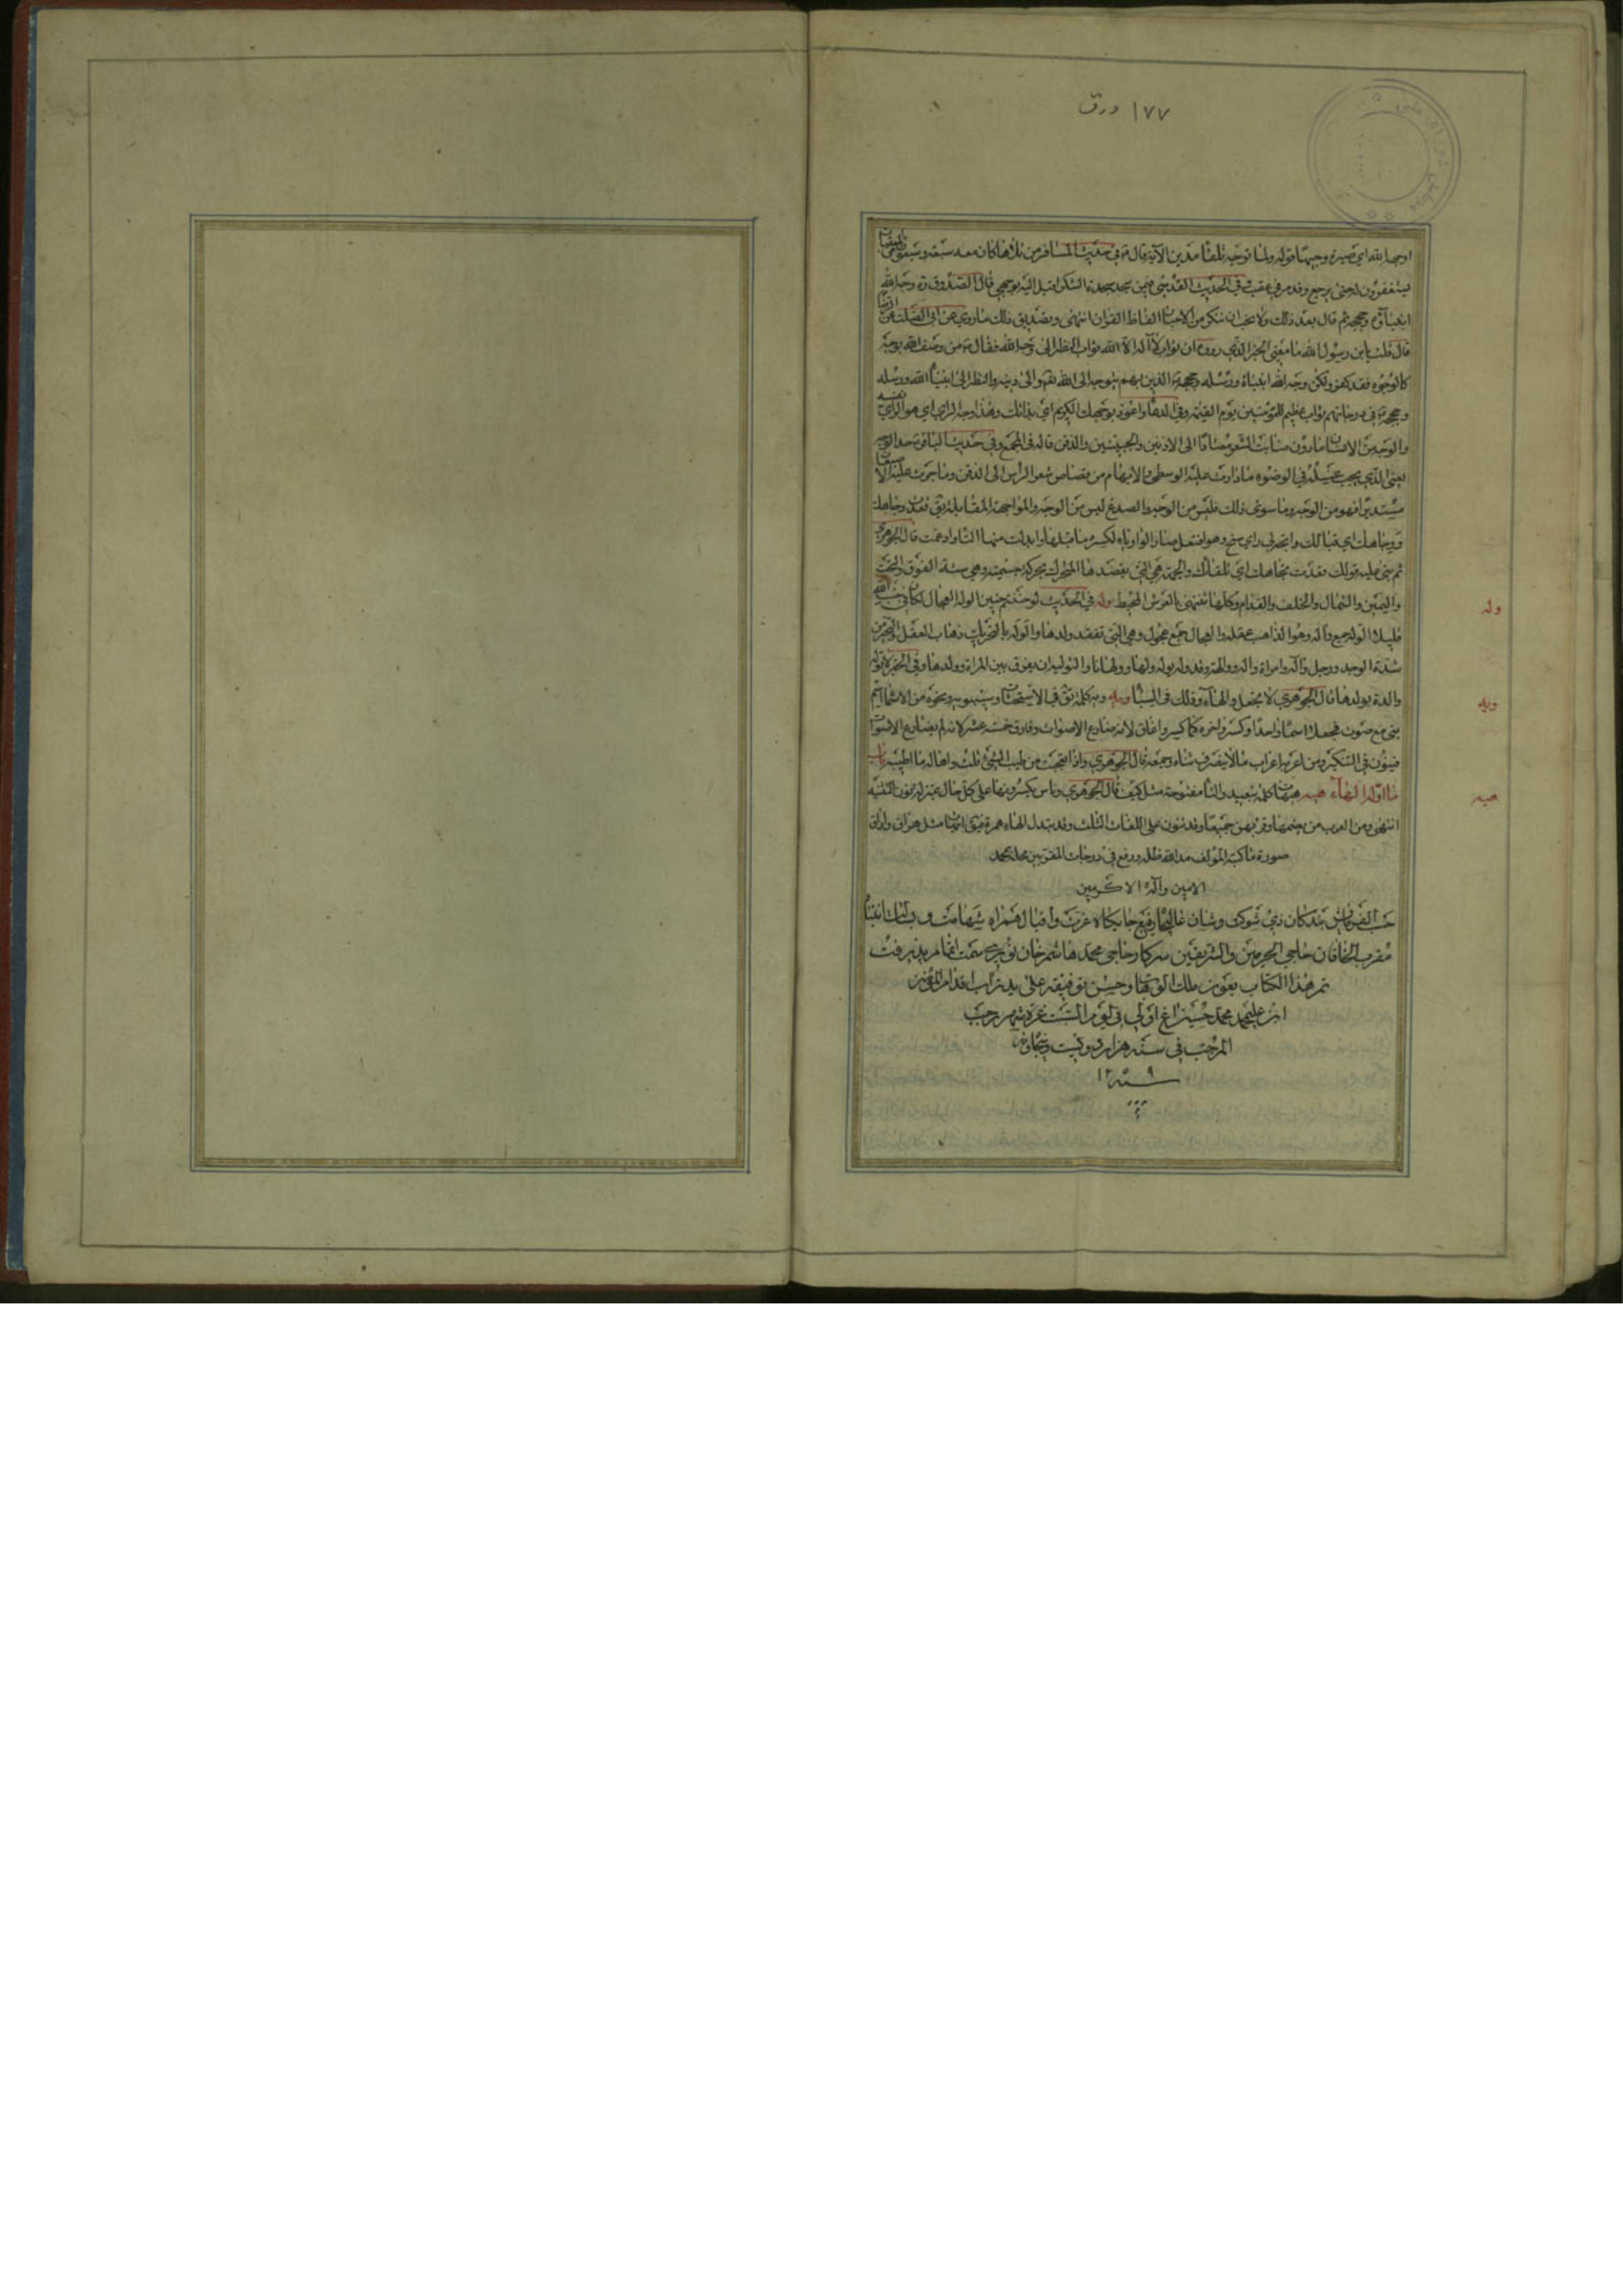 ١٧٧ ورق
اوجهه الله اي صيره وجيها قوله ولما توجه تلقاء مدين الآية قال في حديث المسافر من تلاها كان معه سبعة وسبعون من المعقبات
يستغفرون له حتى يرجع وقد مر في عقب وفي الحديث القدسي فيمن سجد سجدة الشكر اقبل اليه بوجهي قال الصدوق ره وجه الله
انبياؤه وحججه ثم قال بعد ذلك ولا يجب ان تنكر من الاخبار الفاظ القران انتهى وتصديق ذلك ما روي عن ابي الصلت عن الرضا
قال قلت يابن رسول الله ما معنى الخبر الذي رووه ان ثواب لا اله الا الله ثواب النظر الى وجه الله فقال من وصف الله بوجه
كالوجوه فقد كفر ولكن وجه الله انبياؤه ورسله وحججه الذين بهم يتوجه الى الله تعم والى دينه والنظر الى انبياء الله ورسله
وحججه في درجاتهم ثواب عظيم للمؤمنين يوم القيمة وفي الدعاء واعوذ بوجهك الكريم اي بذاتك وهذا وجه الراي اي هو الراي نفسه
والوجه من الانسان ما دون منابت الشعر معتادا الى الاذنين والجبينين والذقن قاله في المجمع وفي حديث الباقر حد الوجه
يعني الذي يجب غسله في الوضوء ما دارت عليه الوسطى والابهام من قصاص شعر الراس الى الذقن وما جرت عليه الاصبعان
مستديرا فهو من الوجه وما سوى ذلك فليس من الوجه والصدغ ليس من الوجه والمواجهة المقابلة يق قعدت وجاهك
ووجاهك اي قبالك واتجه لي راي سنح وهو افتعل صار الواو ياء لكسره ما قبلها وابدلت منها التاء وادغمت قال الجوهري
ثم بني عليه قولك قعدت تجاهك اي تلقاك والجهة هي التي يقصدها المتحرك بحركة جسمية وهي ستة الفوق والتحت
واليمين والشمال والخلف والقدام وكلها تنتهي بالعرش المحيط وله في الحديث لو حننتم حنين الوله العجال لكان في جنب الله
قليلا الوله جمع واله وهو الذاهب عقله والعجال جمع عجول وهي التي تفقد ولدها والوله بالتحريك ذهاب العقل والتحير من
شدة الوجد ورجل واله وامراة واله ووالهة وقد وله يوله ولها وولهانا والتوليه ان يفرق بين المراة وولدها وفي الخبر لا توله
والدة بولدها قال الجوهري لا تجعل والها وذلك في السبايا ويه ويه كلمة تق في الاستحثاث وسيبويه ونحوه من الاسماء اسم
بني مع صوت فجعلا اسما واحدا وكسر واخره كما كسروا غاق لانه ضارع الاصوات وفارق خمسة عشر لانه لم يضارع الاصوات
فينون في التنكير ومن اعربه اعراب ما لا ينصرف ثناه وجمعه قال الجوهري واذا تعجبت من طيب الشيء قلت واها له ما اطيبه باب
ما اوله الهاء هيه هيهات كلمة تبعيد والتاء مفتوحة مثل كيف قال الجوهري وناس يكسرونها على كل حال بمنزلة نون التثنية
انتهى ومن العرب من يضمها وقرئ بهن جميعا وقد تنون على اللغات الثلث وقد تبدل الهاء همزة فيق ايهات مثل هراق واراق
صورة ما كتبه المؤلف مد الله ظله ورفع في درجات المقربين محله بمحمد
الامين وآله الاكرمين
حسب الفرمايش بندكان ذي شوكت وشان عاليجاه رفيع جايكاه عزت واقبال همراه شهامت و بسالت انتباه
مقرب الخاقان حاجي الحرمين والشريفين سركار حاجي محمد هاشم خان نوري سمت اتمام پذيرفت
تم هذا الكتاب بعون ملك الوهاب وحسن توفيقه على يد تراب اقدام المؤمنين
ابن عليمحمد محمد حسين في يوم السبت غره شهر رجب
المرجب في سنه هزار و دويست و پنجاه و نه
سنه ١٢٥٩
وله
ويه
هيه